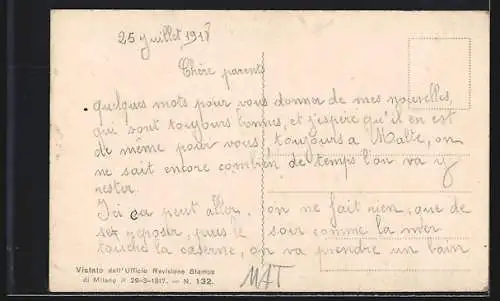 25 juillet 1918
Chère parents
quelques mots pour vous donner de mes nouvelles,
qui sont toujours bonnes, et j'espère qu'il en est
de même pour vous, toujours a Malte, on
ne sait encore combien de temps l'on va y
rester.
Ici ça peut aller, on ne fait rien, que de
se reposer, puis le soir comme la mer
touche la caserne, on va prendre un bain
Vistato dall'Ufficio Revisione Stampa
di Milano il 29-3-1917. — N. 132.